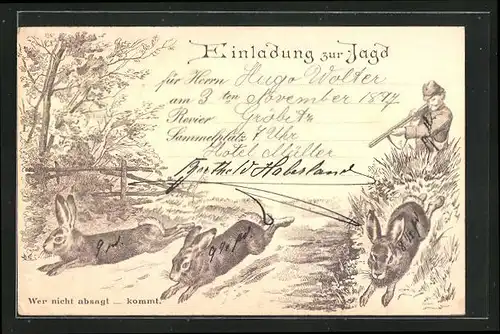 Einladung zur Jagd
für Herrn Hugo Wolter
am 3 ten November 1897
Revier Gröbitz
Sammelplatz 7 Uhr
Hotel Müller
Berthold Haberland
Wer nicht absagt ... kommt.